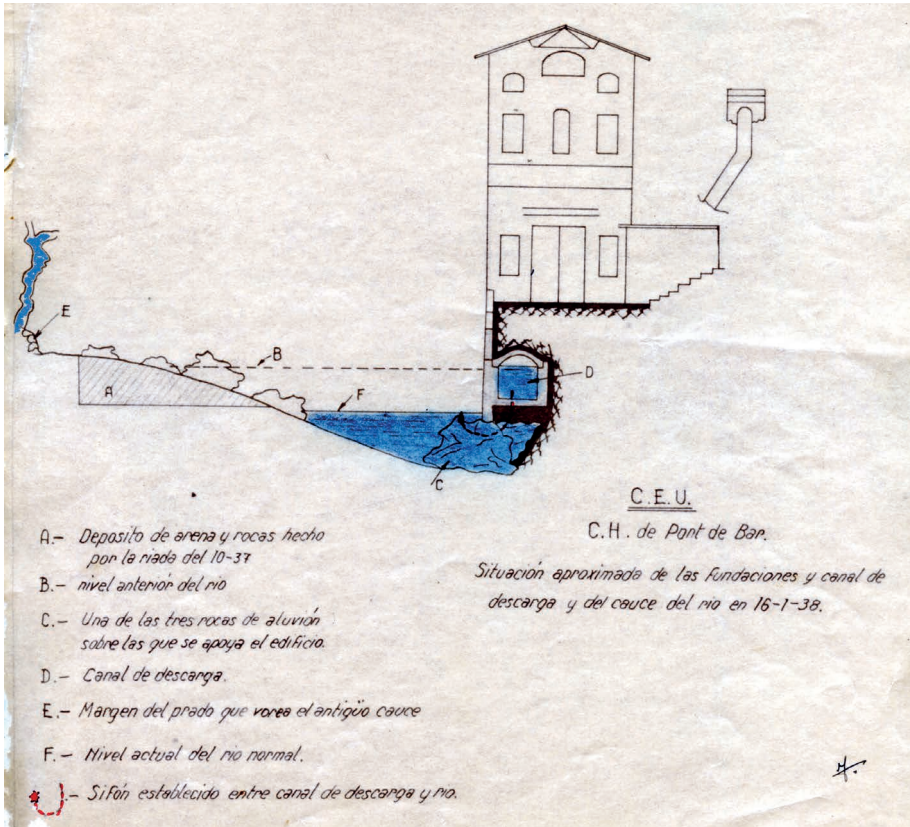 E
B
F
D
A
C
C.E.U.
C.H. de Pont de Bar.
Situación aproximada de las fundaciones y canal de
descarga y del cauce del rio en 16-1-38.
A.- Deposito de arena y rocas hecho
por la riada del 10-37
B.- nivel anterior del rio
C.- Una de las tres rocas de aluvión
sobre las que se apoya el edificio.
D.- Canal de descarga.
E.- Margen del prado que vorea el antigüo cauce
F.- Nivel actual del rio normal.
.- Sifón establecido entre canal de descarga y rio.